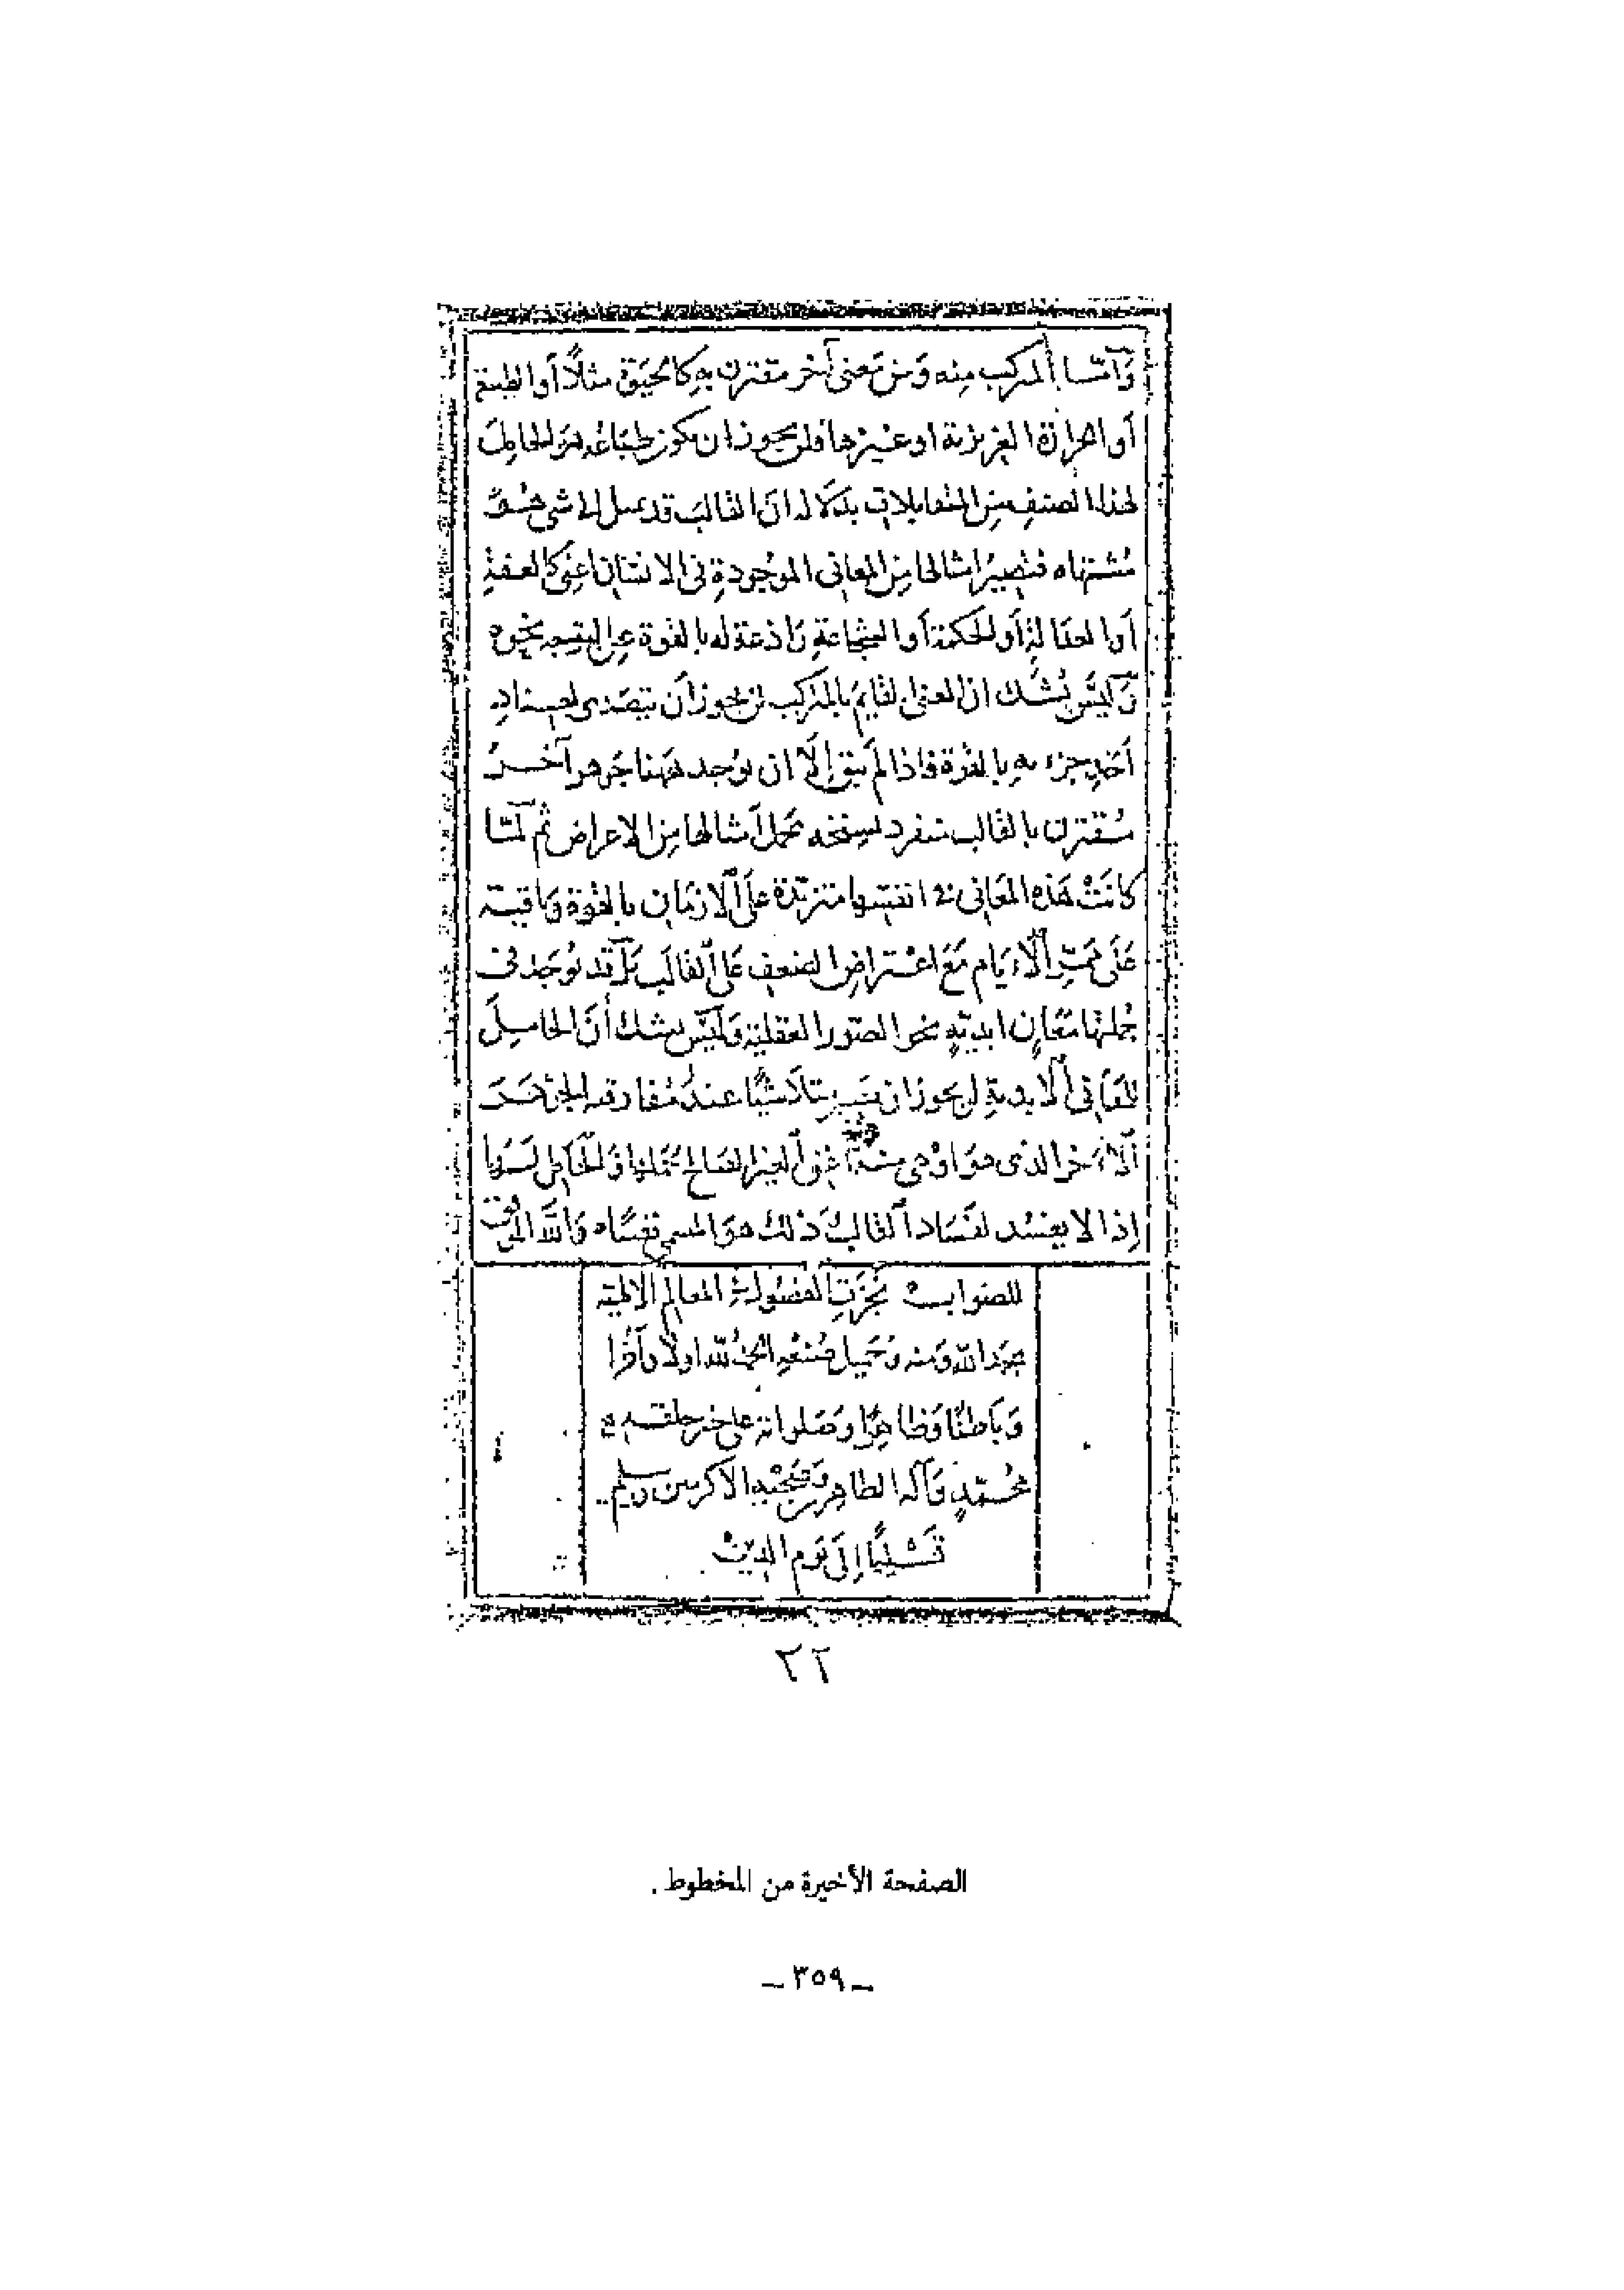 وَأمّا المركب منه وَمن مَعنى آخر مقترن به كالحيوة مثلاً أو الطبع
أو الحرارة الغريزية او غيرها فلن يجوز ان يكون طباعه هو الحامل
لهذا الصنف من المتقابلات بدلالة ان القالب قد يميل الى شيء هو
مشتهاه فتصير امثالها من المعاني الموجودة في الانسان اعني كالعفة
أو العدالة أو الحكمة أو الشجاعة رادعة له بالقوة عن التوجه نحوه
وَليسَ يُشك ان المعنى القايم بالمركب لن يجوز أن يتصدى لعناد
أحد جزءيه بالقوة فاذا لم يبق إلّا ان يوجد ههنا جوهر آخر
مقترن بالقالب منفرد بسنخه تحمل أمثالها من الاعراض ثم لمّا
كانت هَذه المعاني في انفسها متزيّدة على الازمان بالقوة وَباقية
عَلى ممرّ الأيام مَعَ اعتراض الضعف على القالب بَل قد توجد في
جملتها معانٍ ابديّة نحو الصور العقلية وَليسَ يشك أنَّ الحامل
للمعاني الابدية لن يجوز ان يصير متلاشيًا عند مُفارقة الجوهر
الآخر الذي هو اوهى منه اعني الغير الصالح لحملها وَالحامل لها
إذا لا يفسد لفَساد القالب وَذلك هوَ المسمى نفسًا وَاللّه الموفق
للصواب نجزت الفصول في المعالم الالهية
بحمد اللّه ومنه وَجميل صنعه الحمد للّه اولا وآخرا
وَبَاطنًا وَظاهرًا وصَلواته على خير خلقه
محُمّدٍ وَآله الطاهرين وَصحبه الاكرمين وسلم
تسليمًا إلى يَوم الدين
٢٢
الصفحة الأخيرة من المخطوط .
ـ ٣٥٩ ـ